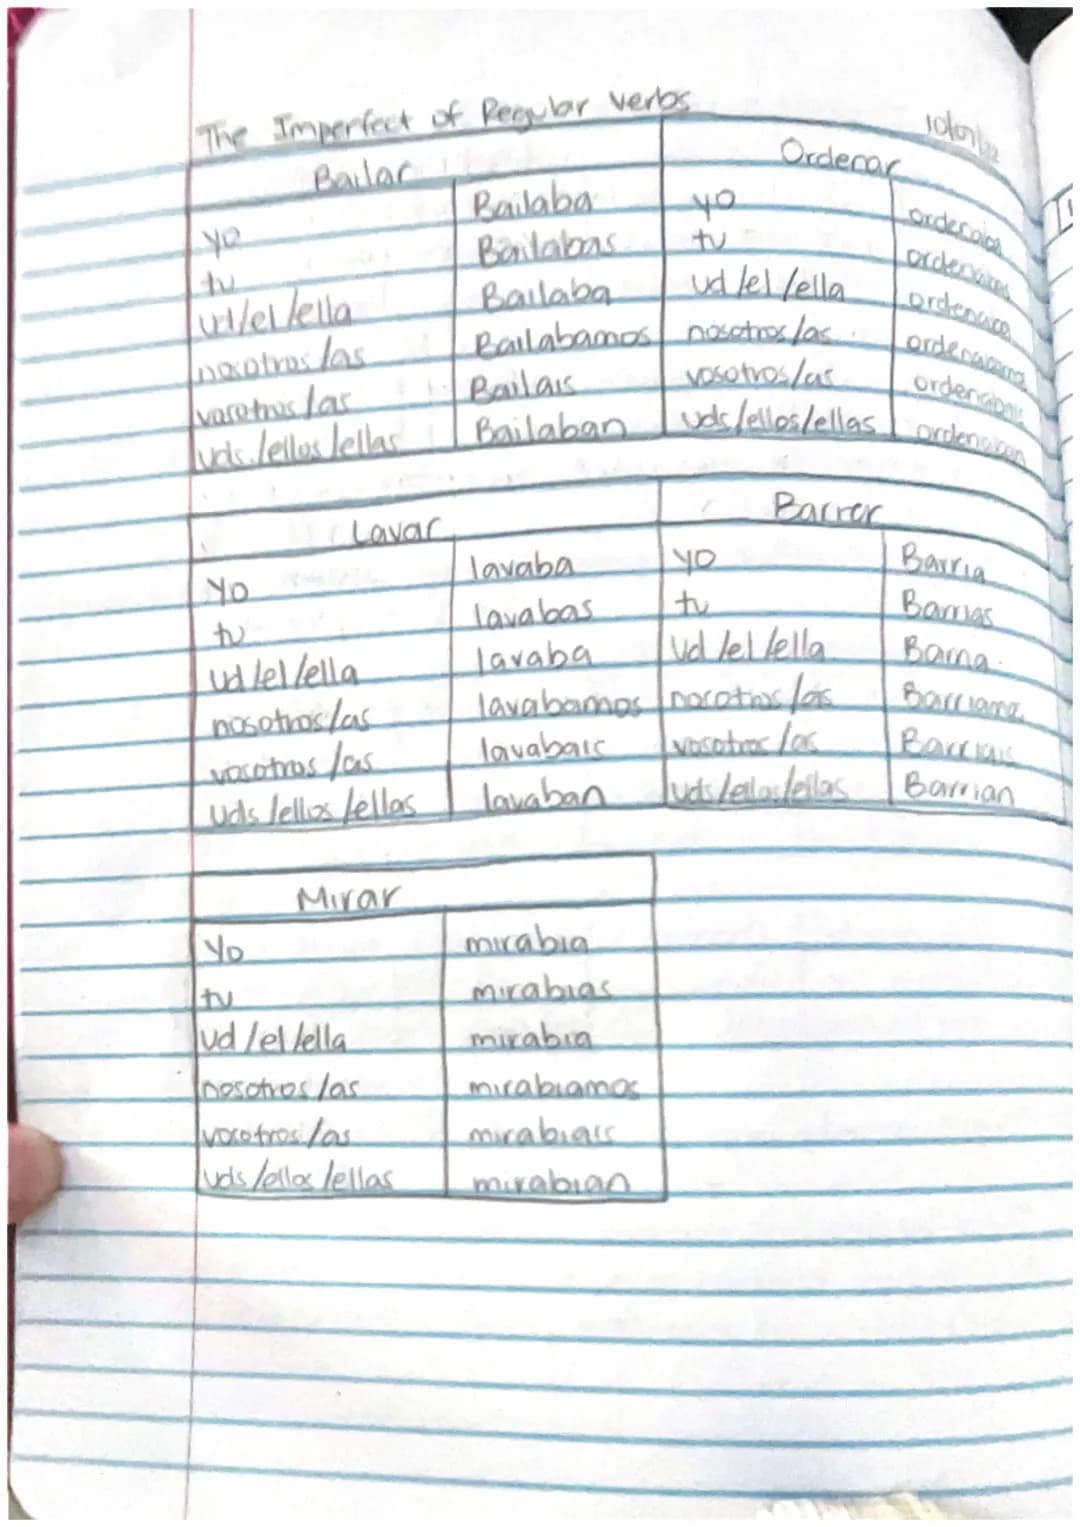 The Imperfect of Regular verbs
Bailar
yo Bailaba
tu Bailabas
ud/el/ella Bailaba
nosotros/las Bailabamos
vosotros/las Bailais
uds./ellos/ellas Bailaban
Ordenar
yo ordenaba
tu ordenabas
ud/el/ella ordenaba
nosotros/as ordenabamos
vosotros/as ordenabais
uds/ellos/ellas ordenaban
Lavar
Yo lavaba
tu lavabas
ud/el/ella lavaba
nosotros/as lavabamos
vosotros/as lavabais
uds/ellos/ellas lavaban
Barrer
yo Barria
tu Barrias
Ud/el/ella Barria
nosotros/as
vosotros/as Barriais
uds/ellos/ellas Barrian
Mirar
Yo mirabia
tu mirabias
ud/el/ella mirabia
nosotros/as mirabiamos
vosotros/as mirabiais
uds/ellos/ellas mirabian